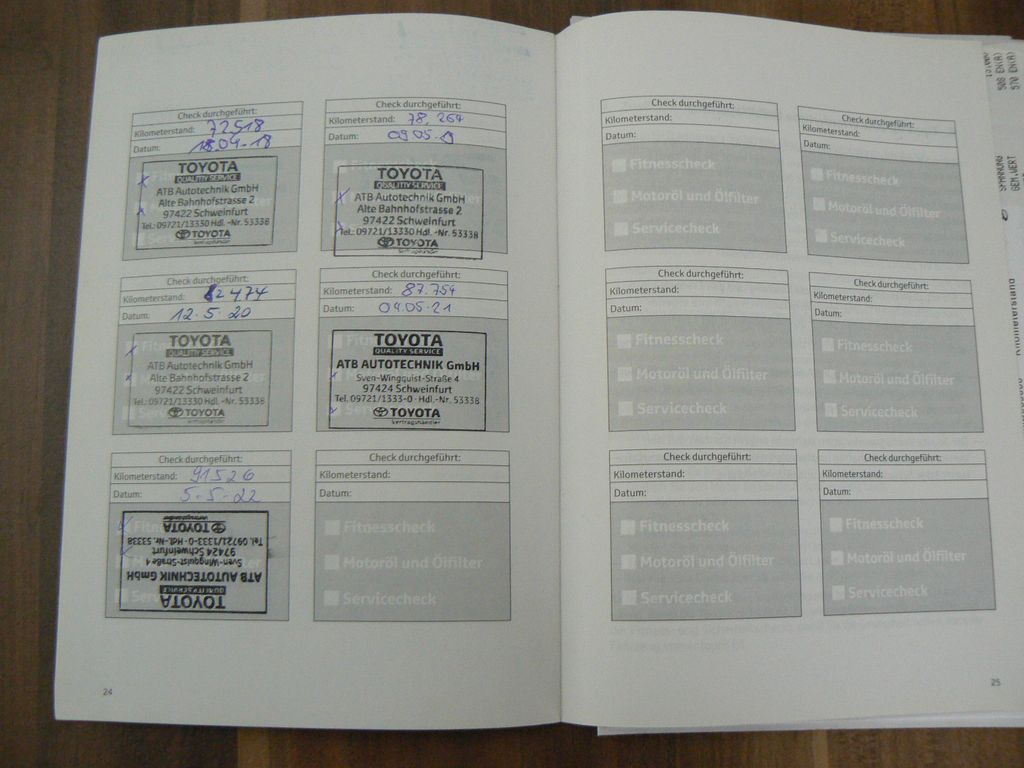 Check durchgeführt:
Kilometerstand: 72518
Datum: 18.04-18
TOYOTA
QUALITY SERVICE
ATB Autotechnik GmbH
Alte Bahnhofstrasse 2
97422 Schweinfurt
Tel.: 09721/13330 Hdl. -Nr. 53338
TOYOTA
Vertragshändler
Check durchgeführt:
Kilometerstand: 78.264
Datum: 09.05-19
TOYOTA
QUALITY SERVICE
ATB Autotechnik GmbH
Alte Bahnhofstrasse 2
97422 Schweinfurt
Tel.: 09721/13330 Hdl. -Nr. 53338
TOYOTA
Check durchgeführt:
Kilometerstand: 82474
Datum: 12.5.20
TOYOTA
QUALITY SERVICE
ATB Autotechnik GmbH
Alte Bahnhofstrasse 2
97422 Schweinfurt
Tel.: 09721/13330 Hdl. -Nr. 53338
TOYOTA
Vertragshändler
Check durchgeführt:
Kilometerstand: 87.754
Datum: 04.05-21
TOYOTA
QUALITY SERVICE
ATB AUTOTECHNIK GmbH
Sven-Wingquist-Straße 4
97424 Schweinfurt
Tel. 09721/1333-0 · Hdl.-Nr. 53338
TOYOTA
Vertragshändler
Check durchgeführt:
Kilometerstand: 91526
Datum: 5-5-22
TOYOTA
QUALITY SERVICE
ATB AUTOTECHNIK GmbH
Sven-Wingquist-Straße 4
97424 Schweinfurt
Tel. 09721/1333-0 · Hdl.-Nr. 53338
TOYOTA
Vertragshändler
Check durchgeführt:
Kilometerstand:
Datum:
Fitnesscheck
Motoröl und Ölfilter
Servicecheck
24
Check durchgeführt:
Kilometerstand:
Datum:
Fitnesscheck
Motoröl und Ölfilter
Servicecheck
Check durchgeführt:
Kilometerstand:
Datum:
Fitnesscheck
Motoröl und Ölfilter
Servicecheck
Check durchgeführt:
Kilometerstand:
Datum:
Fitnesscheck
Motoröl und Ölfilter
Servicecheck
Check durchgeführt:
Kilometerstand:
Datum:
Fitnesscheck
Motoröl und Ölfilter
Servicecheck
Check durchgeführt:
Kilometerstand:
Datum:
Fitnesscheck
Motoröl und Ölfilter
Servicecheck
Check durchgeführt:
Kilometerstand:
Datum:
Fitnesscheck
Motoröl und Ölfilter
Servicecheck
25
508 EN(A)
570 EN(A)
SPANNUNG
GEM.WERT
Kilometerstand